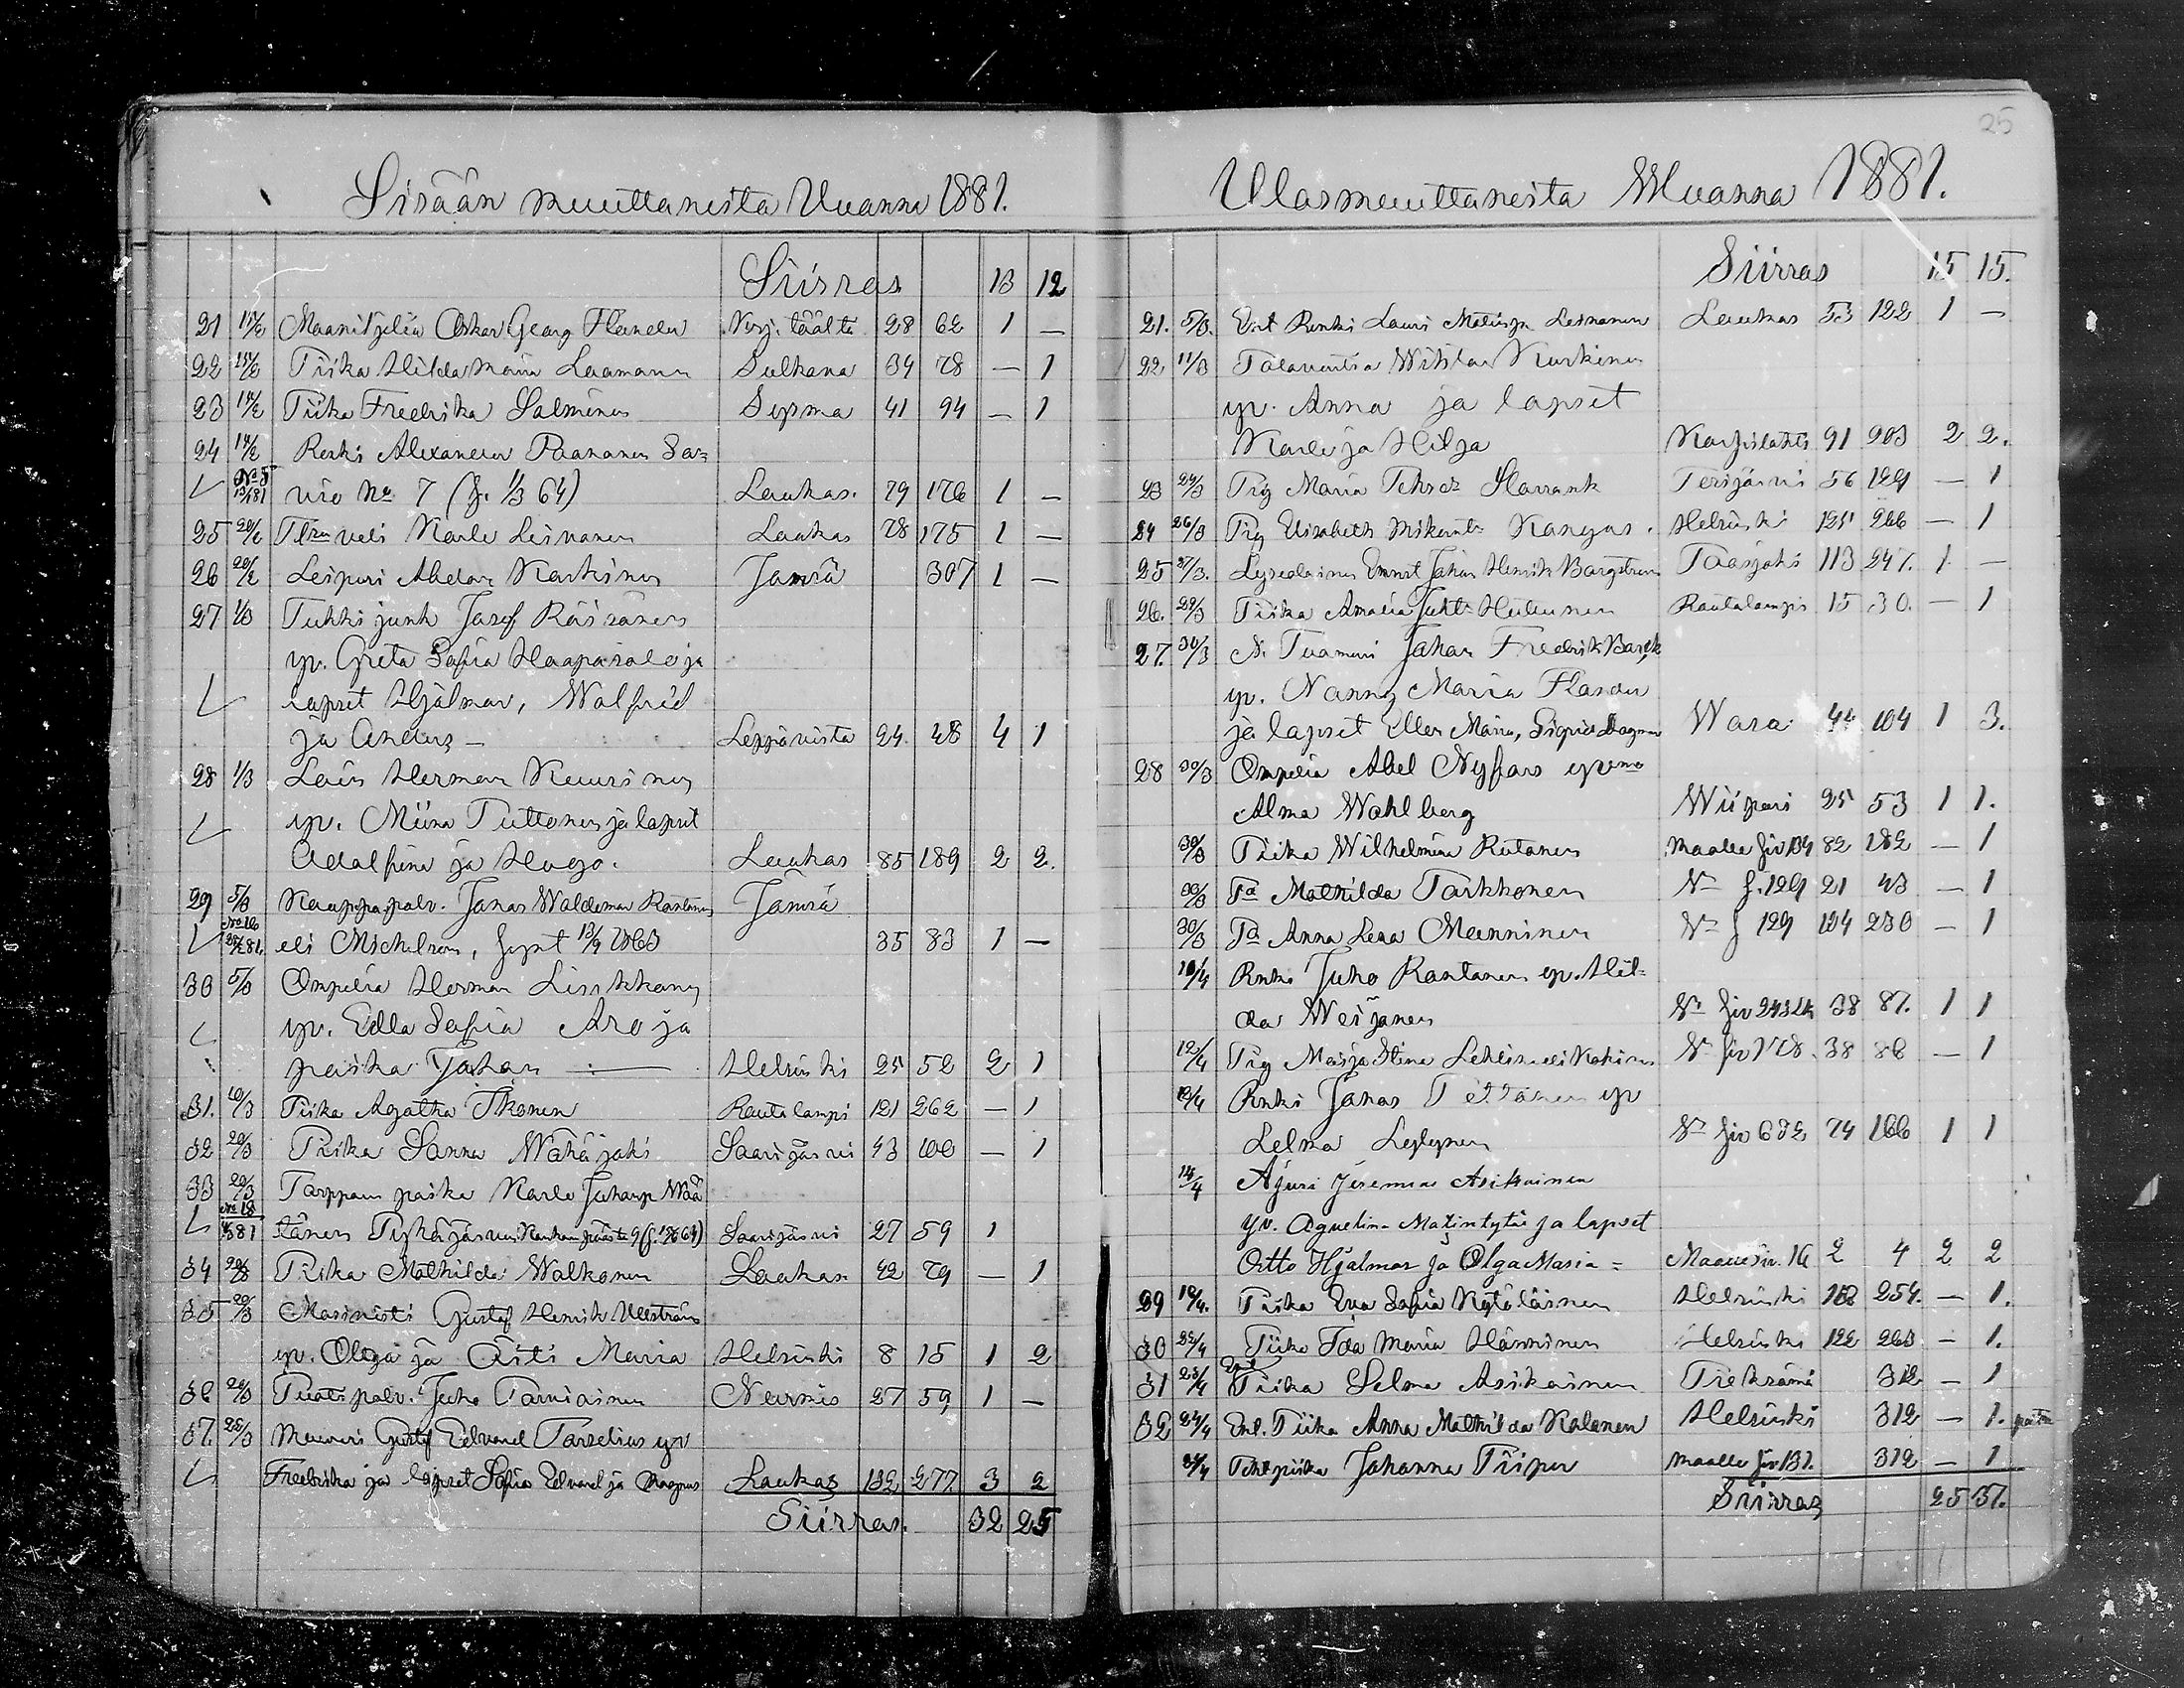 25
Sisään muuttaneita Vuonna 1881.
Siirras 13 12
21 15/2 Maanviljeliä Oskar Georg Flander Nyj. täältä 28 62 1 —
22 15/2 Piika Hilda Maria Laamanen Sulkava 34 78 — 1
23 15/2 Piika Fredrika Salminen Sysmä 41 94 — 1
24 14/2 Renki Alexander Paananen Saa=
No 5 13/1 81 vio No 7 (f. 1/3 64) Laukas. 79 176 1 —
25 20/2 veli Kalle Leinonen Laukas 78 175 1 —
26 20/2 Leipuri Abelar Karkinen Jämsä 307 1 —
27 1/3 Tukkijunk Josef Räisänen
yv. Greta Sofia Haapasalo ja
lapset Hjalmar, Walfrid
ja Anders — Leppävirta 24 48 4 1
28 1/3 Lois Herman Kuusinen
yv. Miina Tuttonen ja lapset
Adalfina ja Hugo. Laukas 85 189 2 2.
29 5/3 Kauppapalv. Jonas Waldemar Rantanen Jämsä
No 16 28/2 81. eli Mickelson, synt 13/9 1863 35 83 1 —
30 5/3 Ompelia Herman Liukkonen
yv. Edla Sofia Aro ja
poika Johan — Helsinki 25 52 2 1
31. 10/3 Piika Agatha Ikonen Rautalampi 121 262 — 1
32 20/3 Piika Sanna Wähäjoki Saarijärvi 43 100 — 1
33 20/3 Torppan poika Karle Juhanp Wää
No 18 81 tänen Pyhäjärvi 9 (f. 64) Saarijärvi 27 59 1
34 20/3 Piika Mathilda Walkonen Laukas 42 79 — 1
35 20/3 Masinisti Gustaf Henrik Ullström
yv. Olga ja Äiti Maria Helsinki 8 15 1 2
36 20/3 Puotipalv. Juho Tarviainen Nurmes 27 59 1 —
37. 22/3 Muurari Gustaf Edvard Torselius yv
Fredrika ja lapset Sofia Edvard ja Magnus Laukas 132 277. 3 2
Siirras. 32 25
Ulosmuuttaneita Wuonna 1881.
Siirras 15 15.
21. 5/3. Ent Renki Lauri Matinp. Leinonen Laukas 53 122 1 —
22 11/3 Talavahti Wihtor Karkinen
yv. Anna ja lapset
Karle ja Hilja Karjilahti 91 203 2 2.
23 24/3 Pig Maria Slarrank Terijärvi 56 129 — 1
24 26/3 Pig Elisabeth Mikontr Kangas. Helsinki 125 266 — 1
25 Lyseolainen Ernst Johan Henrik Borgström Taasjoki 113 247. 1 —
26. 29/3 Piika Amalia Juhtr Hiltunen Rautalampi 15 30. — 1
27. 30/3 N. Tuomari Johan Fredrik Barck
yv. Nanny Maria Flander
ja lapset Ellen Maria, Sigrid Dagmar Wasa 44 104 1 3.
28 30/3 Ompelia Abel Nyfors yvmo
Alma Wahlberg Wiipuri 25 53 1 1.
30/3 Piika Wilhelmina Rutanen Maalle siv 134 82 182 — 1
30/3 Pa Mathilda Tarkkonen S. 129 21 43 — 1
30/3 Pa Anna Lena Manninen S 129 104 230 — 1
10/4 Renki Juho Rantanen yv. Hil=
da Weijanen siv 243 38 87. 1 1
12/4 Pig Maija Stina siv 178. 38 88 — 1
12/4 Renki Jonas yv
Selma siv 632 74 166 1 1
14/4 Ajuri Jeremias Asikainen
yv. Agnetina Matintytär ja lapset
Otto Hjalmar ja Olga Maria = Maalle siv. 16 2 4 2 2
29 19/4. Piika Eva Sofia Kytöläinen Helsinki 118 254. — 1.
30 22/4 Piika Ida Maria Hänninen Helsinki 122 263 — 1.
31 23/4 Piika Selma Asikainen Pieksämä 312 — 1
32 24/4 Enl. Piika Anna Mathilda Kalanen Helsinki 312 — 1.
Johanna Piipar maalle siv 131. 312 — 1
Siirras 25 37.